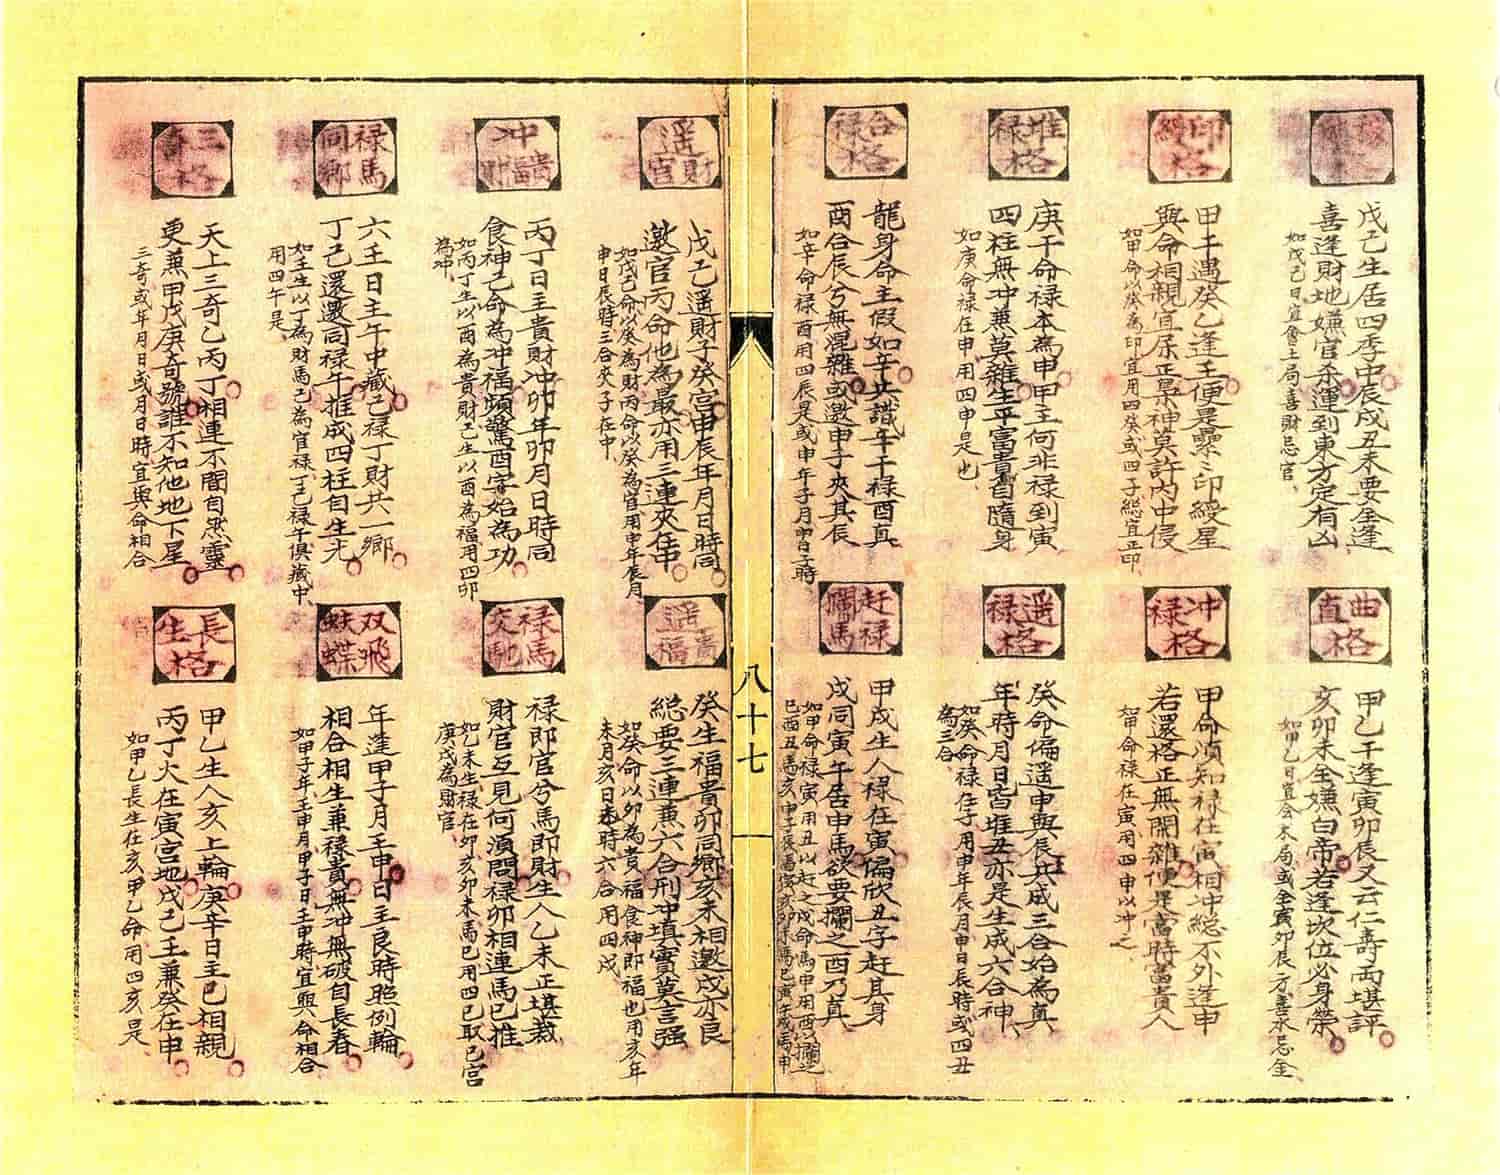 稼穡格
戊己生居四季中辰戌丑未要全逢
喜逢財地嫌官杀運到東方定有凶
如戊己日宜會土局喜財忌官
印綬格
甲壬遇癸乙逢壬便是纍〻印綬星
與命相親宜屎正梟神莫許內中侵
如甲命以癸為印宜用四癸或四子総宜正印
堆禄格
庚干命禄本為申甲主何非禄到寅
四柱無冲兼莫雜生平富貴自隨身
如庚命禄在申用四申是也
合禄格
龍身命主假如辛共識辛干禄酉真
酉合辰兮無混雜或邀申子夾其辰
如辛命禄酉用四辰是或申年子月申日子時
曲直格
甲乙干逢寅卯辰又云仁壽両堪評
亥卯未全嫌白帝若逢坎位必身榮
如甲乙日宜会木局或全寅卯辰方喜水忌金
冲禄格
甲命湏知禄在寅相冲総不外逢申
若還格正無閑雜便是當時富貴人
如甲命禄在寅用四申以冲之
遥禄格
癸命偏遥申與辰共成三合始為真
年時月日皆堆丑亦是生成六合神
如癸命禄在子用申年辰月申日辰時或四丑
為三合
赶禄攔馬
甲戌生人禄在寅偏欣丑字赶其身
戌同寅午居申馬欲要攔之酉乃真
如甲命禄寅用丑以赶之戌命馬申用酉以攔之
八十七
遥財官
戊己遥財子癸宫申辰年月日時同
邀官丙命他為最亦用三連夾在中
如戊己命以癸為財丙命以癸為官用申年辰月
申日辰時三合夾子在中
冲貴福財
丙丁日主貴財冲卯年卯月日時同
食神己命為冲福頻驚酉字始為功
如丙丁生以酉為貴財己生以酉為福用四卯
為冲
禄馬同鄉
六壬日主午中藏己禄丁財共一鄉
丁己還邀同禄午推成四柱自生光
如壬生以丁為財馬己為官禄丁己禄午俱藏中
用四午是
三奇格
天上三奇乙丙丁相連不間自然靈
更兼甲戊庚奇號誰不知他地下星
三奇或年月日或月日時宜與命相合
遥貴福
癸生福貴卯同鄉亥未相邀戌亦良
総要三連兼六合刑冲填實莫言强
如癸命以卯為貴福食神即福也用亥年
未月亥日未時六合用四戌
禄馬交馳
禄即官兮馬即財生人乙未正堪裁
財官互見何湏問禄卯相連馬巳推
如乙未生禄在卯亥卯未馬巳用四巳取巳宫
庚戊為財官
双飛蚨蝶
年逢甲子月壬申日主良時照例輪
相合相生兼禄貴無冲無破自長春
如甲子年壬申月甲子日壬申時宜與命相合
長生格
甲乙生人亥上輪庚辛日主巳相親
丙丁火在寅宫地戊己壬兼癸在申
如甲乙長生在亥甲乙命用四亥是